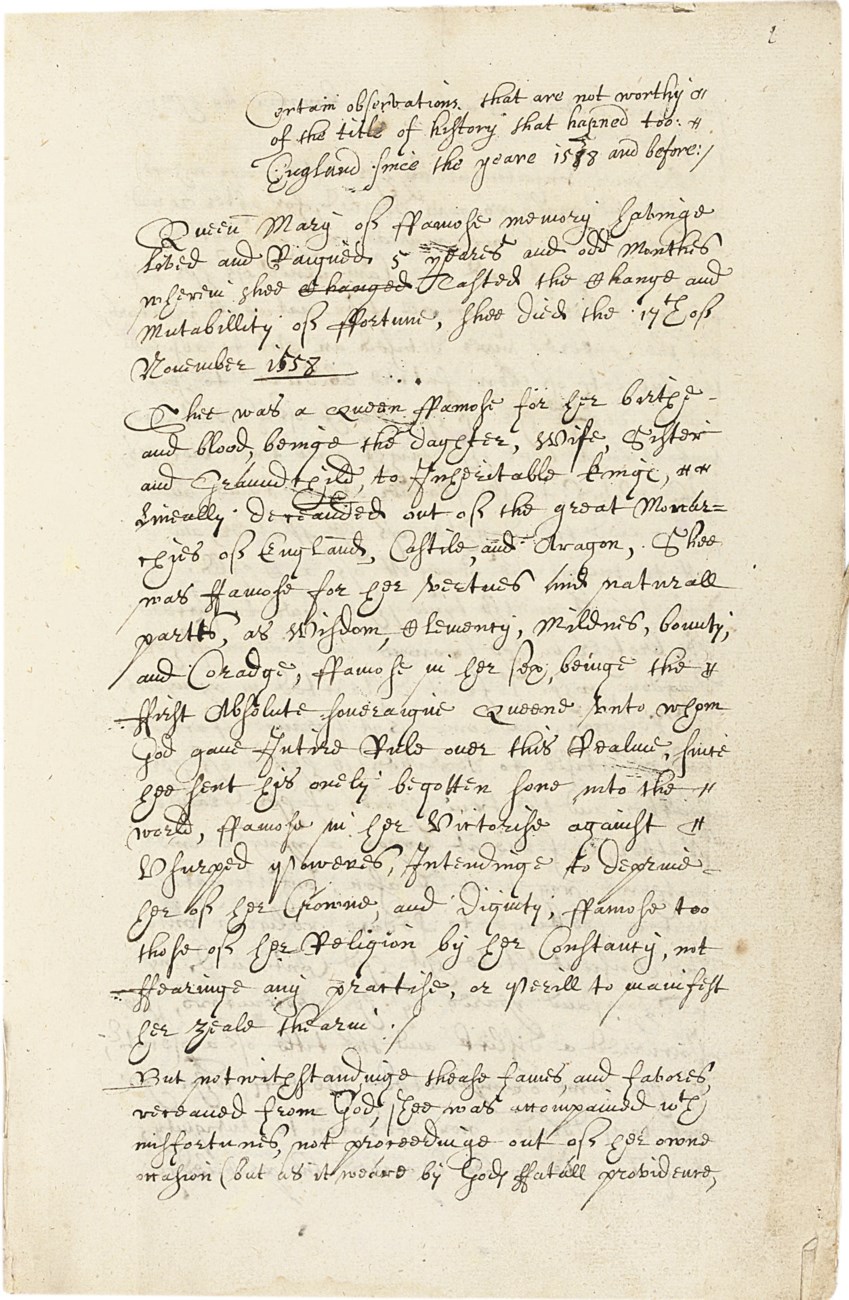 Certain observations that are not worthy
of the title of history that hapned too:
England since the yeare 1558 and before:/
Queen Mary of ffamose memory havinge
lived and Raigned 5 yeares and odd Monthes
wherein shee changed Tasted the Change and
Mutabillity of ffortune, shee died the 17th of
November 1558
Shee was a Queen ffamose for her birthe
and blood, beinge the daghter, Wife, Sister
and Graundchild, to Inheritable kings,
Lineally decended out of the great Monar=
chies of England, Castile, and Aragon, Shee
was ffamose for her vertues and naturall
partts, as Wisdom, Clemency, Mildnes, bounty,
and Coradge, ffamose in her sex, beinge the
ffirst Absolute soveraigne Queene vnto whom
God gaue Intire Rule over this Realme, since
hee sent his onely begotten sone into the
world, ffamose in her Victorise against
Vsurped Poweres, Intendinge to depriue
her of her Crowne, and Dignity, ffamose too
those of her Religion by her Constancy, not
ffearinge any practise, or Perill to manifest
her zeale thearin ./
But notwithstandinge thease fames, and favores,
receaued from God, shee was accompained wth
misfortunes, not proceedinge out of her owne
occasion (but as it weare by Gods ffatall providence,